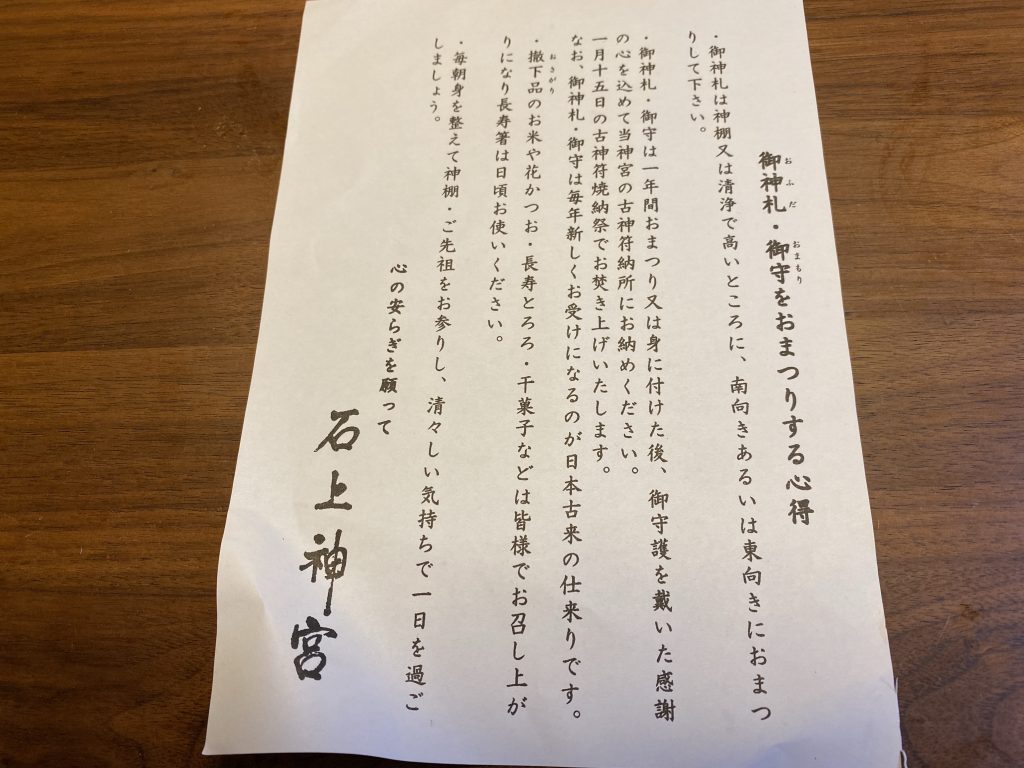 御神札・御守をおまつりする心得
おふだ
おまもり
・御神札は神棚又は清浄で高いところに、南向きあるいは東向きにおまつ
りして下さい。
・御神札・御守は一年間おまつり又は身に付けた後、御守護を戴いた感謝
の心を込めて当神宮の古神符納所にお納めください。
一月十五日の古神符焼納祭でお焚き上げいたします。
なお、御神札・御守は毎年新しくお受けになるのが日本古来の仕来りです。
おさがり
・撤下品のお米や花かつお・長寿とろろ・干菓子などは皆様でお召し上が
りになり長寿箸は日頃お使いください。
・毎朝身を整えて神棚・ご先祖をお参りし、清々しい気持ちで一日を過ご
しましょう。
心の安らぎを願って
石上神宮